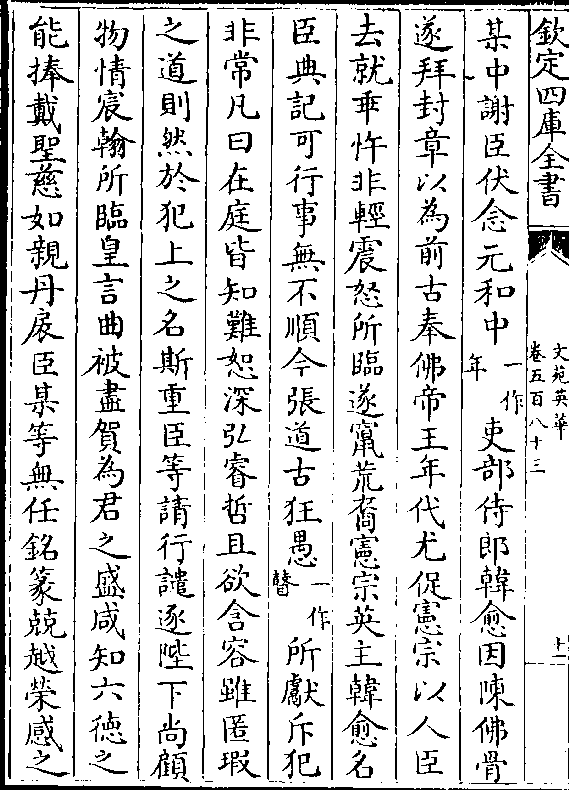 欽定四庫全書
文苑英華
卷五百八十三
十一
某中謝臣伏念元和中一作年吏部侍郎韓愈因陳佛骨
遂拜封章以為前古奉佛帝王年代尤促憲宗以人臣
去就乖忤非輕震怒所臨遂竄荒裔憲宗英主韓愈名
臣典記可行事無不順今張道古狂愚一作瞽所獻斥犯
非常凡曰在庭皆知難恕深弘睿哲且欲含容雖匿瑕
之道則然於犯上之名斯重臣等請行譴逐陛下尚顧
物情宸翰所臨皇言曲被盡賀為君之盛咸知六德之
能捧戴聖慈如親丹扆臣某等無任銘篆兢越榮感之